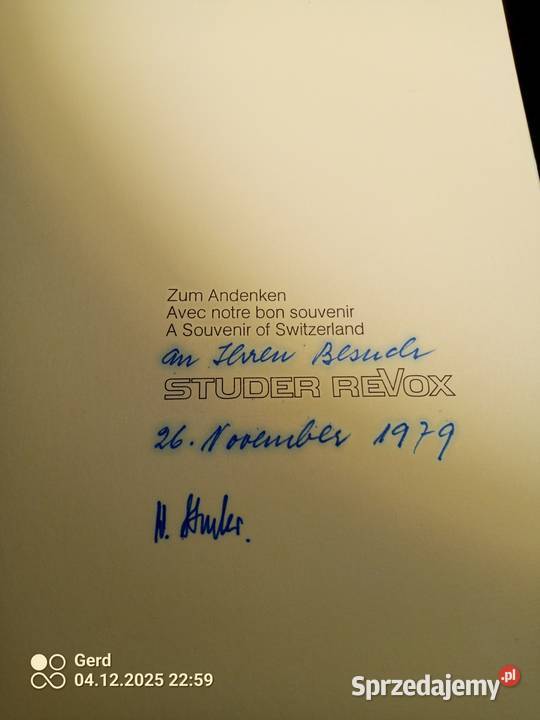 Zum Andenken
Avec notre bon souvenir
A Souvenir of Switzerland
an Ihren Besuch
STUDER REVOX
26. November 1979
H. Studer.
Gerd
04.12.2025 22:59
Sprzedajemy.pl